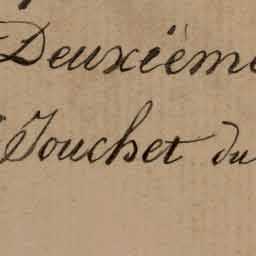 Deuxième
Touchet du